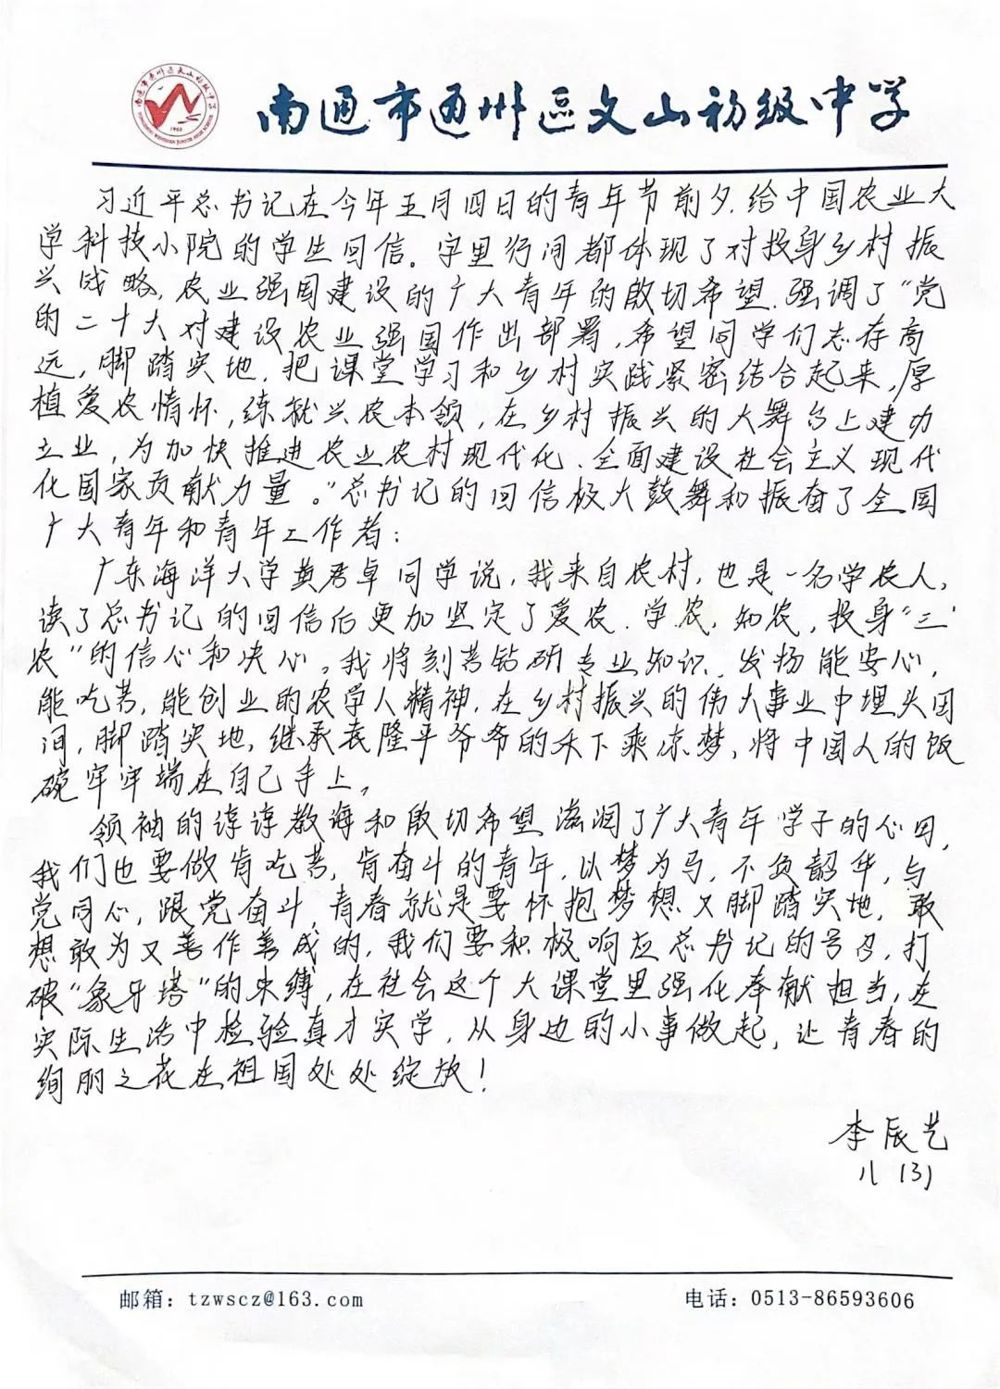 南通市通州区文山初级中学
习近平总书记在今年五月四日的青年节前夕.给中国农业大
学科技小院的学生回信。字里行间都体现了对投身乡村振
兴战略,农业强国建设的广大青年的殷切希望.强调了“党
的二十大对建设农业强国作出部署,希望同学们志存高
远,脚踏实地,把课堂学习和乡村实践紧密结合起来,厚
植爱农情怀,练就兴农本领,在乡村振兴的大舞台上建功
立业,为加快推进农业农村现代化、全面建设社会主义现代
化国家贡献力量。”总书记的回信极大鼓舞和振奋了全国
广大青年和青年工作者:
广东海洋大学黄君卓同学说,我来自农村,也是一名学农人,
读了总书记的回信后更加坚定了爱农.学农,知农,投身“三
农”的信心和决心。我将刻苦钻研专业知识,发扬能安心,
能吃苦,能创业的农学人精神,在乡村振兴的伟大事业中埋头田
间,脚踏实地,继承袁隆平爷爷的禾下乘凉梦,将中国人的饭
碗牢牢端在自己手上。
领袖的谆谆教诲和殷切希望滋润了广大青年学子的心田,
我们也要做肯吃苦,肯奋斗的青年,以梦为马,不负韶华,与
党同心,跟党奋斗,青春就是要怀抱梦想又脚踏实地,敢
想敢为又善作善成的,我们要积极响应总书记的号召,打
破“象牙塔”的束缚,在社会这个大课堂里强化奉献担当,走
实际生活中检验真才实学,从身边的小事做起,让青春的
绚丽之花在祖国处处绽放!
李辰艺
八(3)
邮箱:tzwscz@163.com
电话:0513-86593606